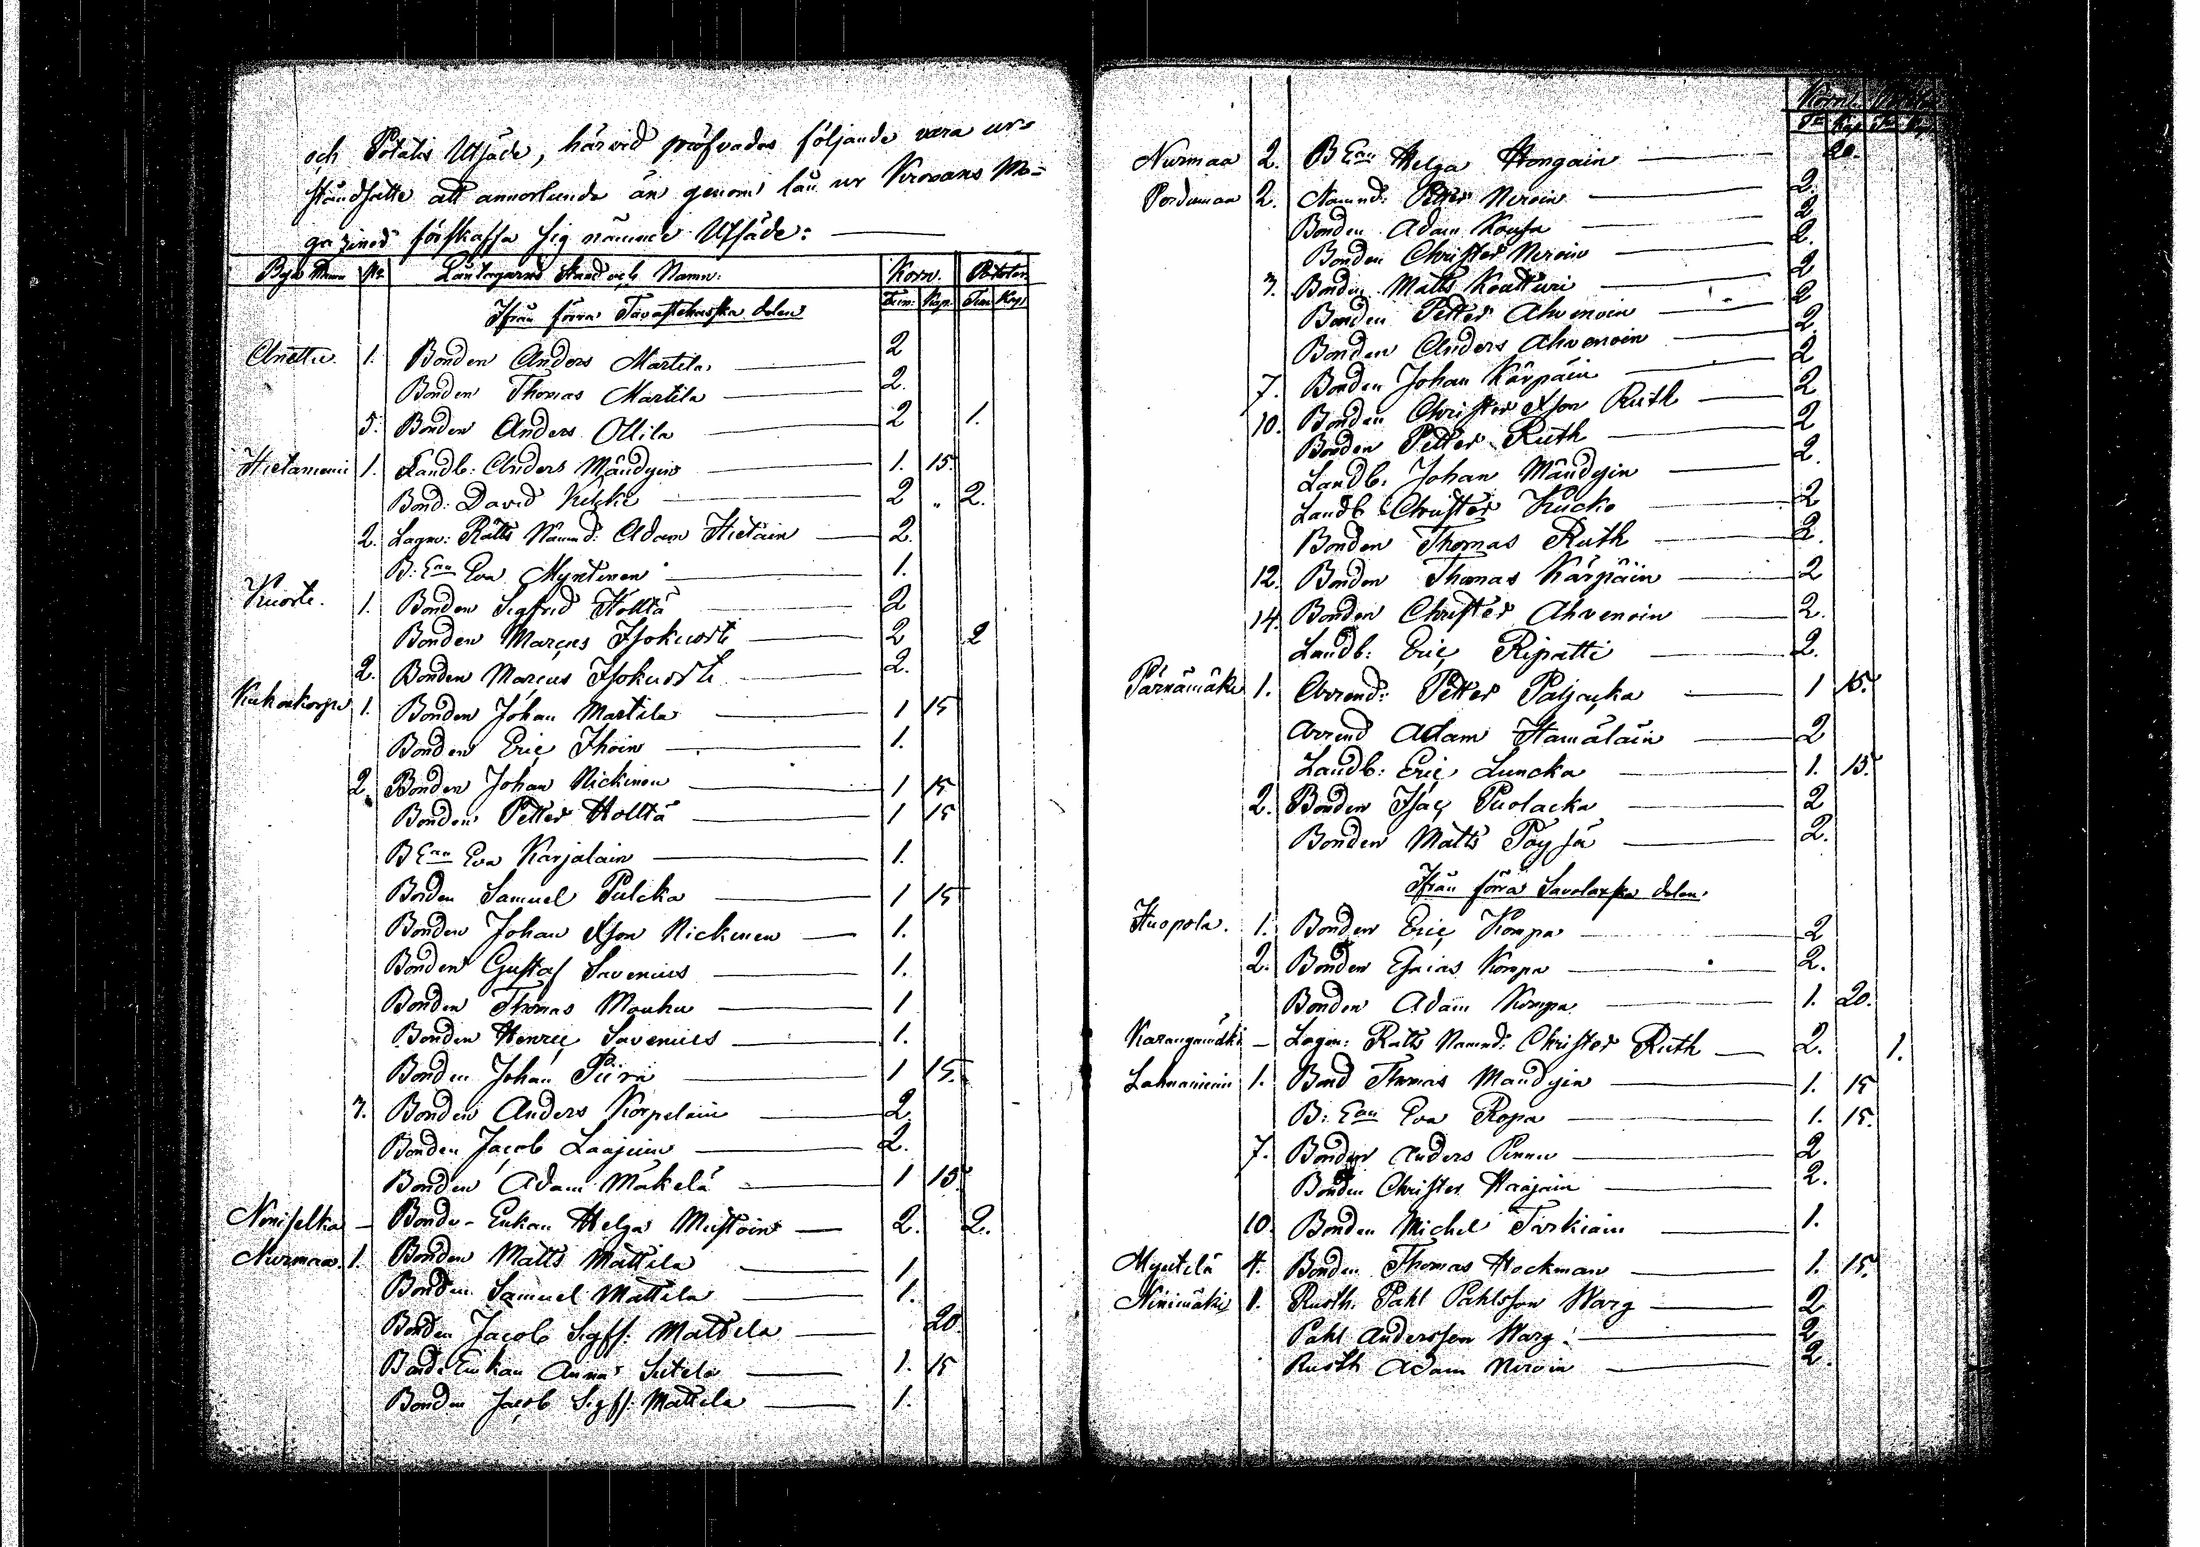 och Potatis Utsäde, härvid pröfvades följande vara ur
ståndsatte att annorlunda än genom lån ur Kronans Ma-
gazined förskaffa sig nämnde Utsäde:
Byns Namn No. Låntagarnes stånd och Namn: Korn. Potater
Tun: Kap. Tun Kap
Ifrån förra Tavastehuska delen
Anettu. 1. Bonden Anders Martila 2
Bonden Thomas Martila 2.
5. Bonden Anders Ollila 2 1.
Hietaniemi 1. Landb: Anders Mändyin 1. 15.
Bond: David Kekki 2 „ 2.
2. Lagm: Rätts Nämnd: Adam Hietain 2.
B: Enn Eva Myntinen 1.
Kuorti. 1. Bonden Sigfrid Hölttä 2
Bonden Marcus Isokuorti 2 2
2. Bonden Marcus Isokuorti 2.
Kuhankorpi 1. Bonden Johan Martila 1 15
Bonden Eric Ihoin 1.
2. Bonden Johan Nickinen 1 15
Bonden Petter Hölttä 1 15
B Enn Eva Karjalain 1.
Bonden Samuel Pulcka 1 15
Bonden Johan Xson Nickinen 1.
Bonden Gustaf Savenius 1.
Bonden Thomas Mauku 1
Bonden Henric Savenius 1.
Bonden Johan Piiri 1 15.
3. Bonden Anders Korpelain 2.
Bonden Jacob Laajein 2.
Bonden Adam Mäkelä 1 15.
Niniselkä – Bonde-Enkan Helga Mustoin 2. 2.
Nurmaa. 1. Bonden Matts Mattila 1
Bonden Samuel Mattila 1.
Bonden Jacob Sigfs: Mattila 20.
Bonde Enkan Anna Sutela 1. 15
Bonden Jacob Sigfs: Mattila 1.
Korn
Tn Kap Tn Kap
Nurmaa 2. B Enn Helga Hongain 20.
Pordumaa 2. Nämnd: Petter Niroin 2.
Bonden Adam Koufa 2
Bonden Christer Niroin 2.
3. Bonden Matts Koutturi 2
Bonden Petter Ahvenoin 2
Bonden Anders Ahvenoin 2
7. Bonden Johan Kärpäin 2
10. Bonden Christer Xson Ruth 2
Bonden Petter Ruth 2
Landb. Johan Mändyin 2.
Landb Christer Kucko 2
Bonden Thomas Ruth 2.
12. Bonden Thomas Kärpäin 2
14. Bonden Christer Ahvenoin 2.
Landb: Eric Ripatti 2.
Pärnämäki 1. Arrend: Petter Paljacka 1 15.
Arrend Adam Hämäläin 2
Landb: Eric Luncka 1. 15.
2. Bonden Isac Puolacka 2
Bonden Matts Pöysä 2.
Ifrån förra Savolaxska delen.
Kuopola. 1. Bonden Eric Kompa 2
2. Bonden Esaias Kompa 2.
Bonden Adam Kompa 1. 20.
Karangamäki – Lagm: Rätts Nämnd: Christer Ruth 2. 1.
Lahnaniemi 1. Bond Thomas Mandyin 1. 15
B: Enn Eva Ropa 1. 15.
7. Bonden Anders Pennu 2
Bonden Christer Haajain 2.
10. Bonden Michel Tarkiain 1.
Myntilä 4. Bonden Thomas Hockman 1. 15.
Ninimäki 1. Rusth. Pahl Pahlsson Warg 2
Pahl Andersson Warg 2
Rusth Adam Niroin 2.